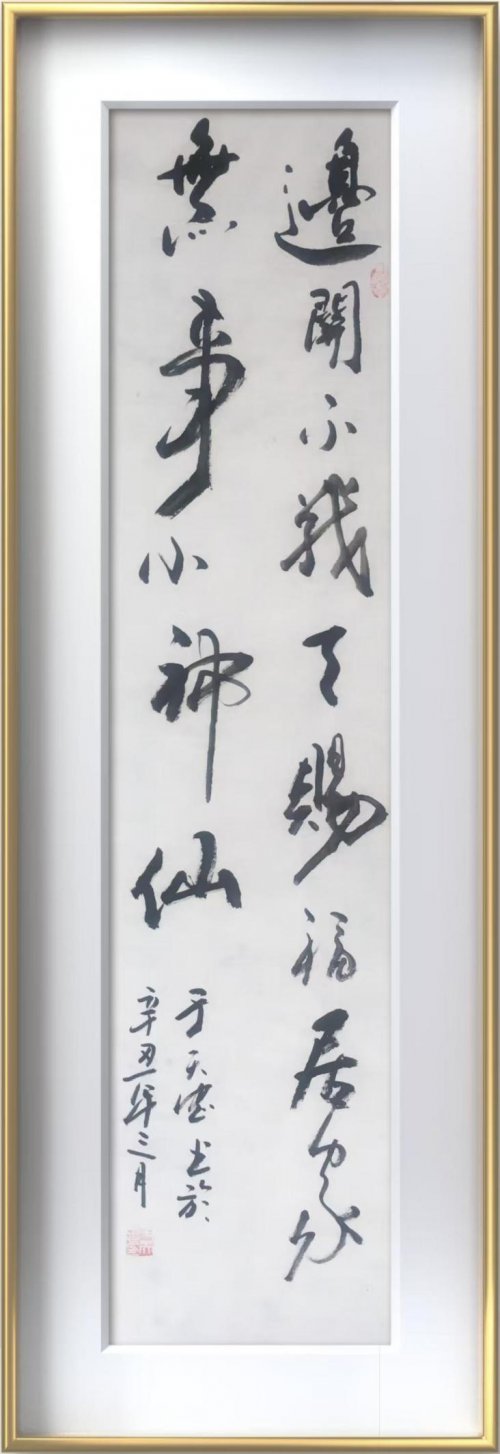 邊關不戰天賜福居家
無事小神仙
于天德书於
辛丑年三月